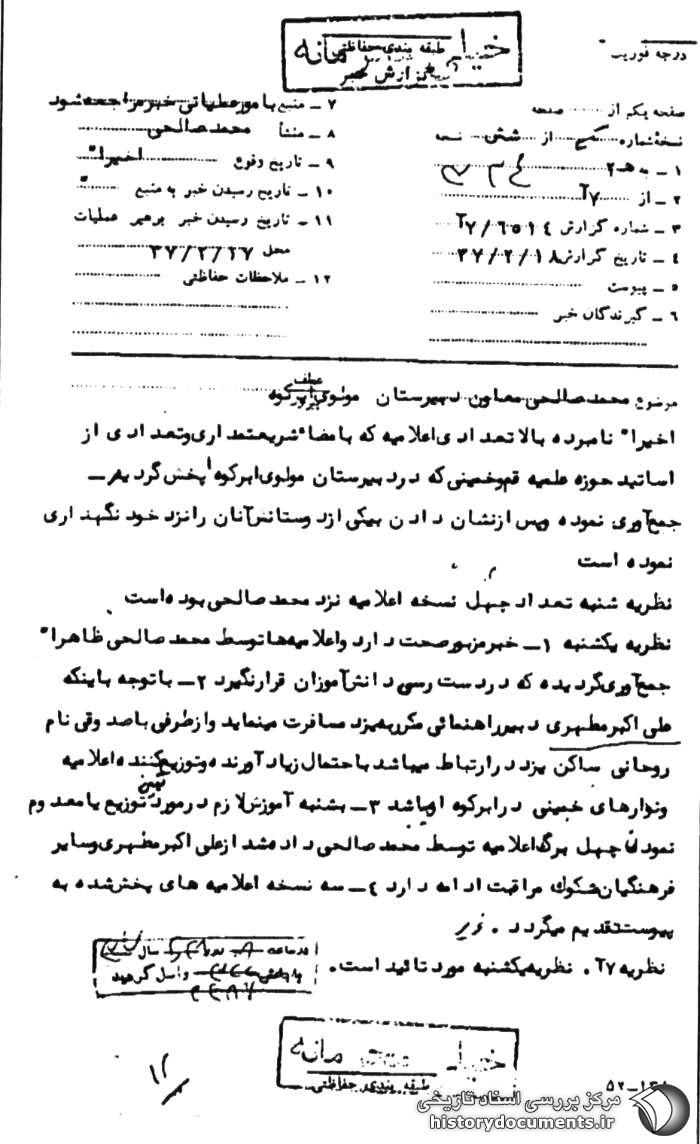 خیلی محرمانه
طبقه بندی حفاظتی
گزارش خبر
درجه فوریت
صفحه یکم از صفحه
نسخهٔ شماره یک از شش نسخه
۱ ـ به ۲هـ ۳۴
۲ ـ از ۷آ
۳ ـ شماره گزارش ۶۵۱۴ / ۷آ
۴ ـ تاریخ گزارش ۳۷/۲/۱۸
۵ ـ پیوست
۶ ـ گیرندگان خبر
۷ ـ منبع با مورعملیاتی خبرمراجعه‌شود
۸ ـ منشأ محمدصالحی
۹ ـ تاریخ وقوع اخیرا"
۱۰ ـ تاریخ رسیدن خبر به منبع "
۱۱ ـ تاریخ رسیدن خبر برهبر عملیات
محل ۳۷/۲/۱۷
۱۲ ـ ملاحظات حفاظتی
موضوع محمدصالحی معاون دبیرستان مولوی ابرکوه
عطف
پیرو
اخیرا" نامبرده بالا تعدادی اعلامیه که بامضاء شریعتمداری وتعدادی از
اساتید حوزه علمیه قم وخمینی که در دبیرستان مولوی ابرکوه پخش گردیده ـ
جمع‌آوری نموده وپس ازنشان دادن بیکی ازدوستانش آنان رانزد خود نگهداری
نموده است
نظریه شنبه تعداد چهل نسخه اعلامیه نزد محمدصالحی بوده است
نظریه یکشنبه ۱ـ خبرمزبورصحت دارد واعلامیه‌ها توسط محمد صالحی ظاهرا"
جمع‌آوری گردیده که در دسترس دانش‌آموزان قرارنگیرد ۲ـ با توجه باینکه
علی اکبرمطهری دبیرراهنمائی مکرربه یزد مسافرت مینماید وازطرفی باصدوقی نام
روحانی ساکن یزد درارتباط میباشد باحتمال زیاد آورنده وتوزیع کننده اعلامیه
ونوارهای خمینی درابرکوه اوباشد ۳ـ بشنبه آموزش لازم درمورد توزیع یامعدوم
نمودن چهل برگ اعلامیه توسط محمد صالحی داده شد ازعلی اکبرمطهری وسایر
فرهنگیان مشکوک مراقبت ادامه دارد ۴ـ سه نسخه اعلامیه های پخش شده به
پیوست تقدیم میگردد .
نظریه ۷آ . نظریه یکشنبه مورد تائید است .
در ساعت روز سال
واصل گردید
خیلی محرمانه
طبقه بندی حفاظتی
۱۲
مرکز بررسی اسناد تاریخی
historydocuments.ir